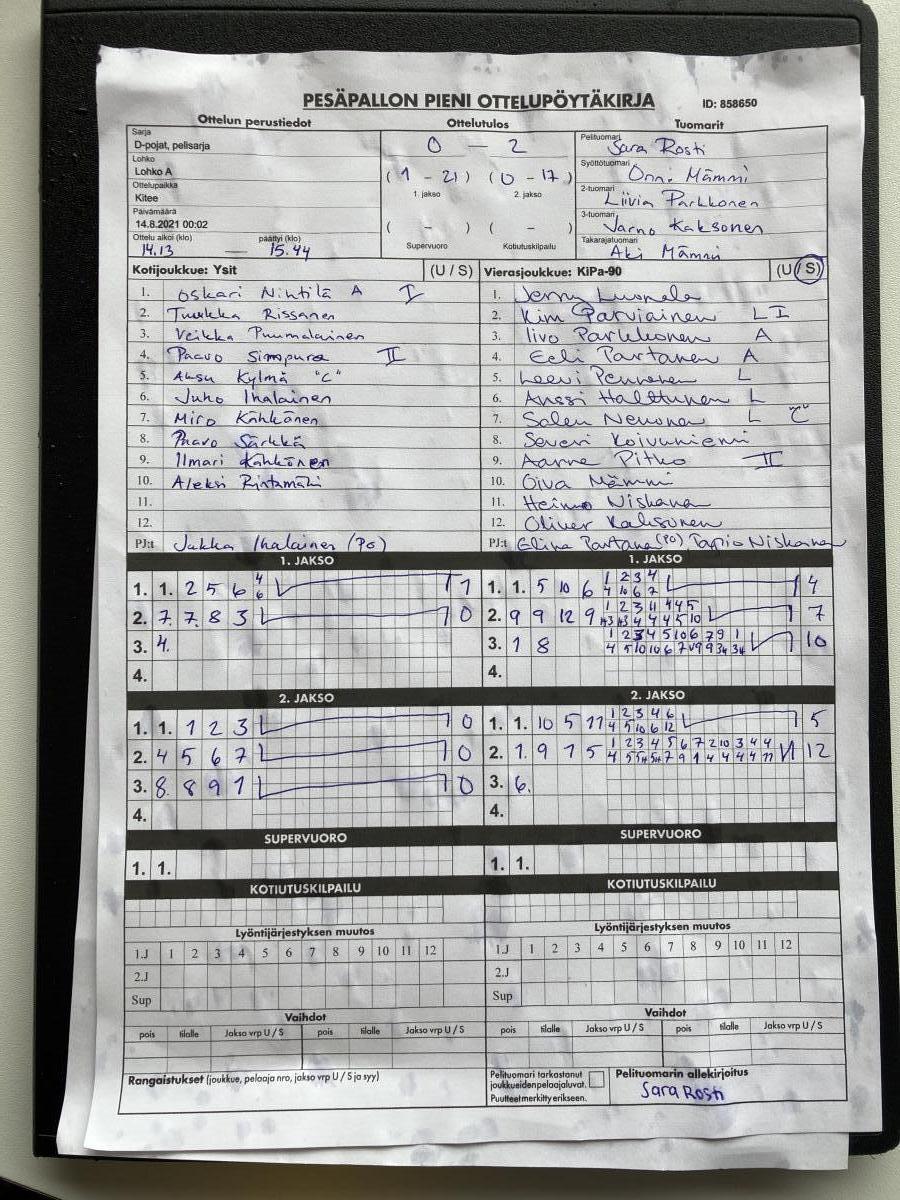 PESÄPALLON PIENI OTTELUPÖYTÄKIRJA ID: 858650
Ottelun perustiedot Ottelutulos Tuomarit
Sarja
D-pojat, pelisarja
Lohko
Lohko A
Ottelupaikka
Kitee
Päivämäärä
14.8.2021 00:02
Ottelu alkoi (klo) päättyi (klo)
14.13 — 15.44
0 — 2
(1 - 21) (0 - 17)
1. jakso 2. jakso
( - ) ( - )
Supervuoro Kotiutuskilpailu
Pelituomari
Sara Rosti
Syöttötuomari
Onni Mämmi
2-tuomari
Liivia Parkkonen
3-tuomari
Varno Kaksonen
Takarajatuomari
Aki Mämmi
Kotijoukkue: Ysit (U / S)
1. Oskari Nihtilä A I
2. Tuukka Rissanen
3. Veikka Puumalainen
4. Paavo Simopura II
5. Aksu Kylmä "C"
6. Juho Ihalainen
7. Miro Kähkönen
8. Paavo Särkkä
9. Ilmari Kähkönen
10. Aleksi Rintamäki
11.
12.
PJ:t Jukka Ihalainen (PO)
Vierasjoukkue: KiPa-90 (U / S)
1. Jerry Luonela
2. Kim Parviainen L I
3. Iivo Parkkonen A
4. Eeli Partanen A
5. Leevi Pennanen L
6. Anssi Halttunen L
7. Salen Nevonen L "C"
8. Severi Koivuniemi
9. Aarne Pitko II
10. Oiva Mämmi
11. Heimo Niskanen
12. Oliver Kaksonen
PJ:t Elina Partanen (PO) Tapio Niskanen
1. JAKSO
1. 1. 2 5 6 4 1
6
2. 7. 7 8 3 0
3. 4.
4.
1. JAKSO
1. 1. 5 10 6 1 2 3 4 4
4 10 6 7
2. 9 9 12 9 1 2 3 4 4 4 5 7
3. 1 8 1 2 3 4 5 10 6 7 9 1 10
4.
2. JAKSO
1. 1. 1 2 3 0
2. 4 5 6 7 0
3. 8. 8 9 1 0
4.
2. JAKSO
1. 1. 10 5 11 1 2 3 4 6 5
4 5 10 6 12
2. 1. 9 1 5 1 2 3 4 5 6 7 2 10 3 4 4 12
3. 6.
4.
SUPERVUORO
1. 1.
SUPERVUORO
1. 1.
KOTIUTUSKILPAILU KOTIUTUSKILPAILU
Lyöntijärjestyksen muutos Lyöntijärjestyksen muutos
1.J 1 2 3 4 5 6 7 8 9 10 11 12 1.J 1 2 3 4 5 6 7 8 9 10 11 12
2.J 2.J
Sup Sup
Vaihdot Vaihdot
pois tilalle Jakso vrp U / S pois tilalle Jakso vrp U / S pois tilalle Jakso vrp U / S pois tilalle Jakso vrp U / S
Rangaistukset (joukkue, pelaaja nro, jakso vrp U / S ja syy)
Pelituomari tarkastanut
joukkueiden pelaajaluvat.
Puutteet merkitty erikseen.
Pelituomarin allekirjoitus
Sara Rosti